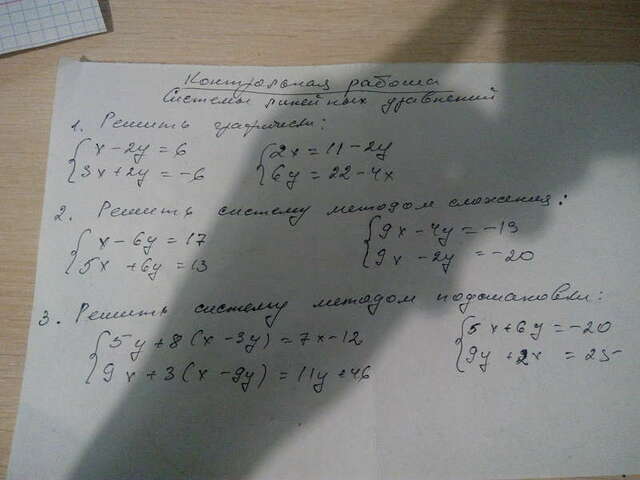 Контрольная работа
Системы линейных уравнений
1. Решить графически:
x - 2y = 6 2x = 11 - 2y
3x + 2y = -6 6y = 22 - 4x
2. Решить систему методом сложения:
x - 6y = 17 9x - 4y = -13
5x + 6y = 13 9x - 2y = -20
3. Решить систему методом подстановки:
5y + 8(x - 3y) = 7x - 12 5x + 6y = -20
9x + 3(x - 9y) = 11y + 46 9y + 2x = 25